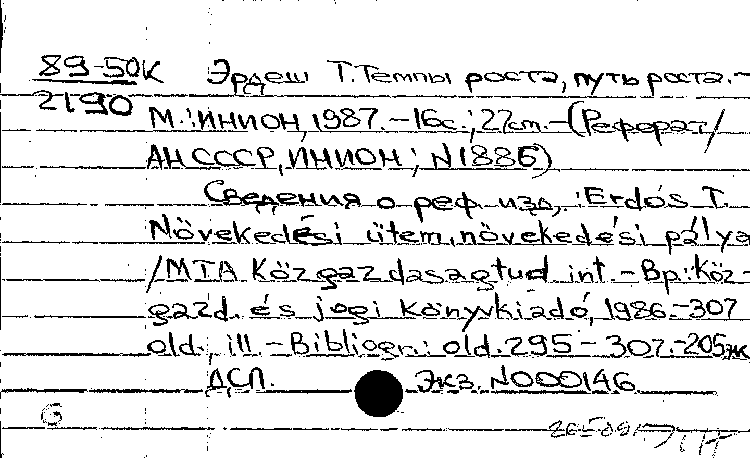 89-50К Эрдеш Т. Темпы роста, путь роста.-
2190 М.: ИНИОН, 1987.-16с.; 27cm.-(Реферат/
АН СССР, ИНИОН; N1886)
Сведения о реф. изд.: Erdős T.
Növekedési ütem, növekedési pálya
/MTA Közgazdasagtud. int.-Bp.: Köz-
gazd. és jogi könyvkiadó, 1986.-307
old., ill.-Bibliogr.: old.295-307.-205эк
ДСП. Экз. N000146
G